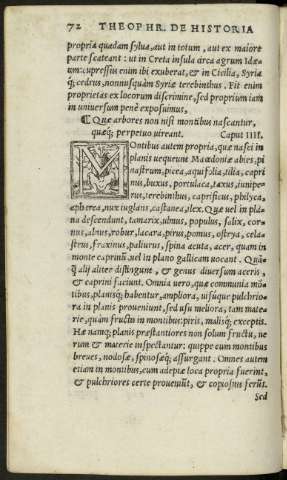 72 THEOPHR. DE HISTORIA
propria quædam sylua, aut in totum, aut ex maiore
parte scateant: ut in Creta insula circa agrum Idæ-
um: cupressus enim ibi exuberat, & in Cilicia, Syriaq́
q;cedrus, nonnusquàm Syriæ terebinthus. Fit enim
proprietas ex locorum discrimine, sed proprium iam
in uniuersum penè exposuimus.
¶ Quæ arbores non nisi montibus nascantur,
quæq; perpetuo uireant. Caput IIII.
MOntibus autem propria, quæ nasci in
planis nequeunt Macedoniæ abies, pi
nastrum, picea, aquifolia, tilia, capri
nus, buxus, portulaca, taxus, iunipe-
rus, terebinthus, caprificus, philyca,
apherea, nux iuglans, castanea, ilex. Quæ uel in pla-
na descendunt, tamarix, ulmus, populus, salix, cor-
nus, alnus, robur, lacara, pirus, pomus, ostrya, cela-
strus, fraxinus, paliurus, spina acuta, acer, quam in
monte caprinũ, uel in plano gallicam uocant. Quã-
q̃ alij aliter distingune, & genus diuersum aceris,
& caprini faciunt. Omnia uero, quæ communia mõ-
tibus, planisq; habentur, ampliora, uisuque pulchrio-
ra in planis proueniunt, sed usu meliora, tam mate-
riæ, quàm fructu in montibus: piris, malisq; exceptis.
Hæ namq; planis præstantiores non solum fructu, ue
rum & materie inspectantur: quippe cum montibus
breues, nodosæ, spinosæq; assurgant. Omnes autem
etiam in montibus, cum adeptæ loca propria fuerint,
& pulchriores certe proueniũt, & copiosius ferũt.
Sed